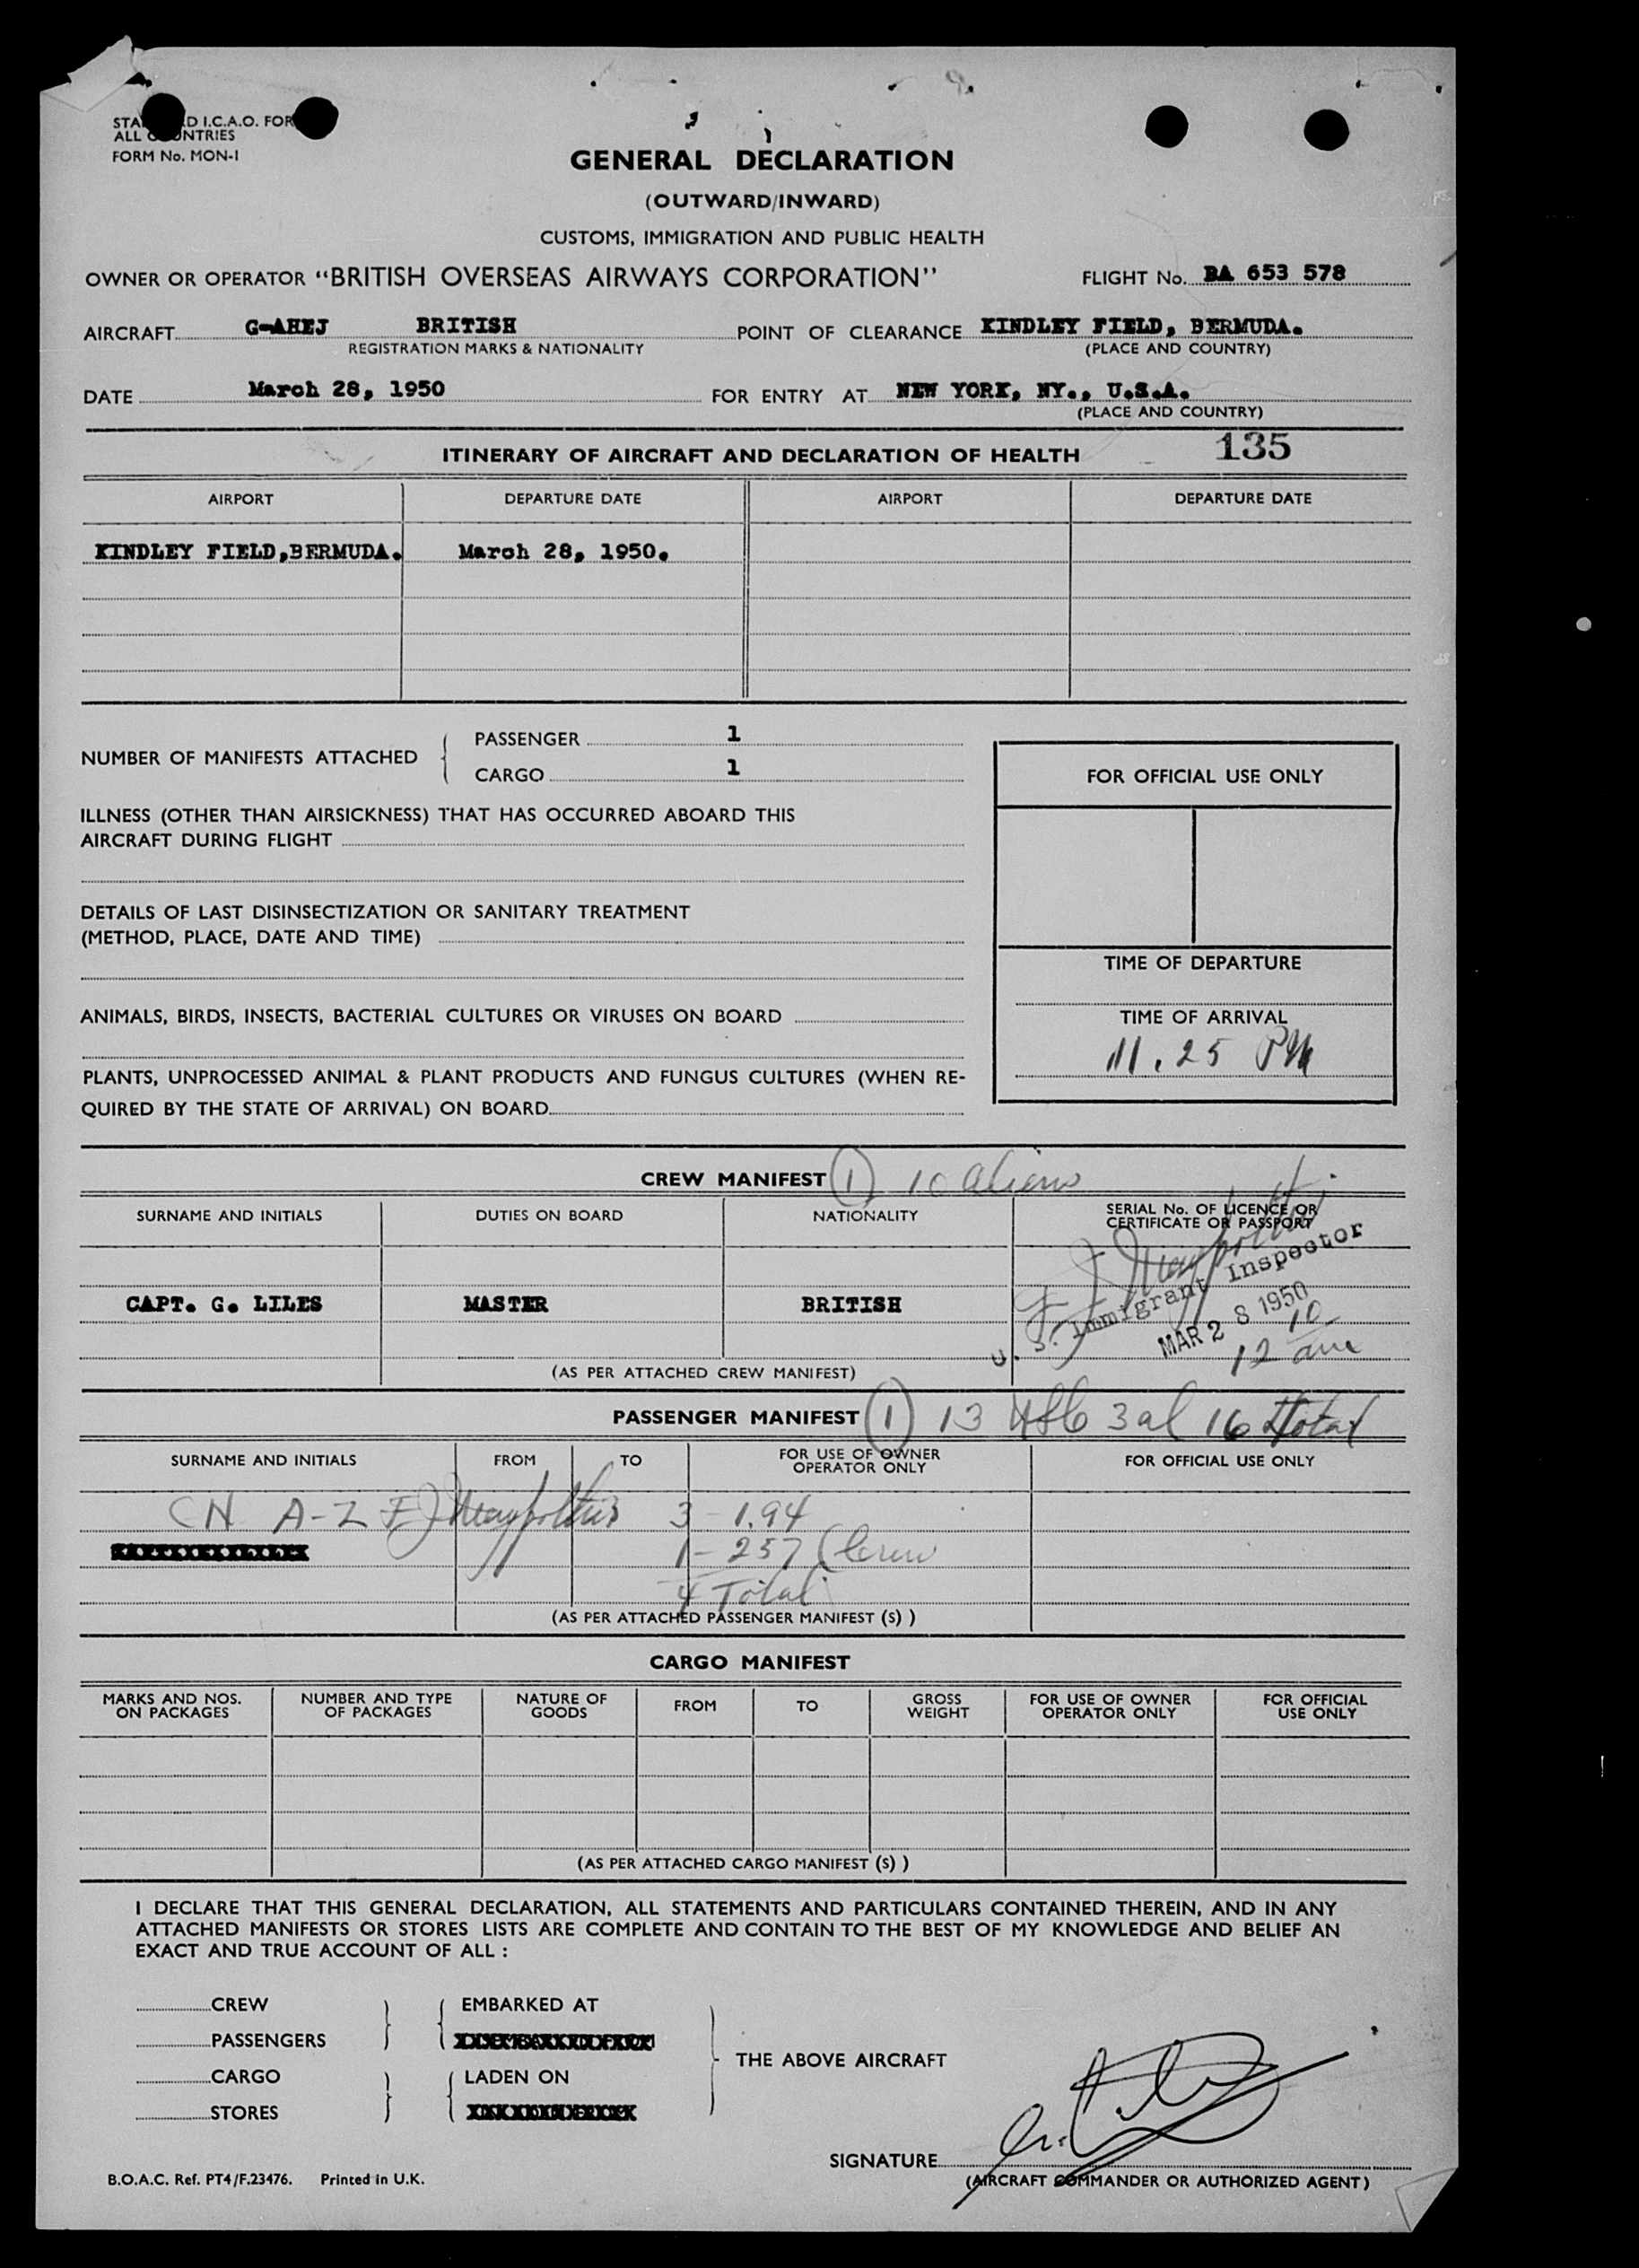 D I.C.A.O. FOR
ALL NTRIES
FORM No. MON-1
GENERAL DECLARATION
(OUTWARD/INWARD)
CUSTOMS, IMMIGRATION AND PUBLIC HEALTH
OWNER OR OPERATOR "BRITISH OVERSEAS AIRWAYS CORPORATION" FLIGHT No. BA 653 578
AIRCRAFT G-AHEJ BRITISH POINT OF CLEARANCE KINDLEY FIELD, BERMUDA.
REGISTRATION MARKS & NATIONALITY (PLACE AND COUNTRY)
DATE March 28, 1950 FOR ENTRY AT NEW YORK, NY., U.S.A.
(PLACE AND COUNTRY)
ITINERARY OF AIRCRAFT AND DECLARATION OF HEALTH 135
AIRPORT DEPARTURE DATE AIRPORT DEPARTURE DATE
KINDLEY FIELD,BERMUDA. March 28, 1950.
NUMBER OF MANIFESTS ATTACHED
PASSENGER 1
CARGO 1
FOR OFFICIAL USE ONLY
ILLNESS (OTHER THAN AIRSICKNESS) THAT HAS OCCURRED ABOARD THIS
AIRCRAFT DURING FLIGHT
DETAILS OF LAST DISINSECTIZATION OR SANITARY TREATMENT
(METHOD, PLACE, DATE AND TIME)
TIME OF DEPARTURE
ANIMALS, BIRDS, INSECTS, BACTERIAL CULTURES OR VIRUSES ON BOARD
TIME OF ARRIVAL
11.25 PM
PLANTS, UNPROCESSED ANIMAL & PLANT PRODUCTS AND FUNGUS CULTURES (WHEN RE-
QUIRED BY THE STATE OF ARRIVAL) ON BOARD
CREW MANIFEST 1 10 aliens
SURNAME AND INITIALS DUTIES ON BOARD NATIONALITY SERIAL No. OF LICENCE OR
CERTIFICATE OR PASSPORT
CAPT. G. LILES MASTER BRITISH
U. S. Immigrant Inspector
MAR 28 1950
10
12
(AS PER ATTACHED CREW MANIFEST)
PASSENGER MANIFEST 1 13 3 al 16 total
SURNAME AND INITIALS FROM TO FOR USE OF OWNER
OPERATOR ONLY FOR OFFICIAL USE ONLY
CN A-Z 3 - 1.94
1 - 257
4 Total
(AS PER ATTACHED PASSENGER MANIFEST (S) )
CARGO MANIFEST
MARKS AND NOS.
ON PACKAGES NUMBER AND TYPE
OF PACKAGES NATURE OF
GOODS FROM TO GROSS
WEIGHT FOR USE OF OWNER
OPERATOR ONLY FOR OFFICIAL
USE ONLY
(AS PER ATTACHED CARGO MANIFEST (S) )
I DECLARE THAT THIS GENERAL DECLARATION, ALL STATEMENTS AND PARTICULARS CONTAINED THEREIN, AND IN ANY
ATTACHED MANIFESTS OR STORES LISTS ARE COMPLETE AND CONTAIN TO THE BEST OF MY KNOWLEDGE AND BELIEF AN
EXACT AND TRUE ACCOUNT OF ALL :
CREW EMBARKED AT
PASSENGERS
THE ABOVE AIRCRAFT
CARGO LADEN ON
STORES
SIGNATURE
(AIRCRAFT COMMANDER OR AUTHORIZED AGENT)
B.O.A.C. Ref. PT4/F.23476. Printed in U.K.